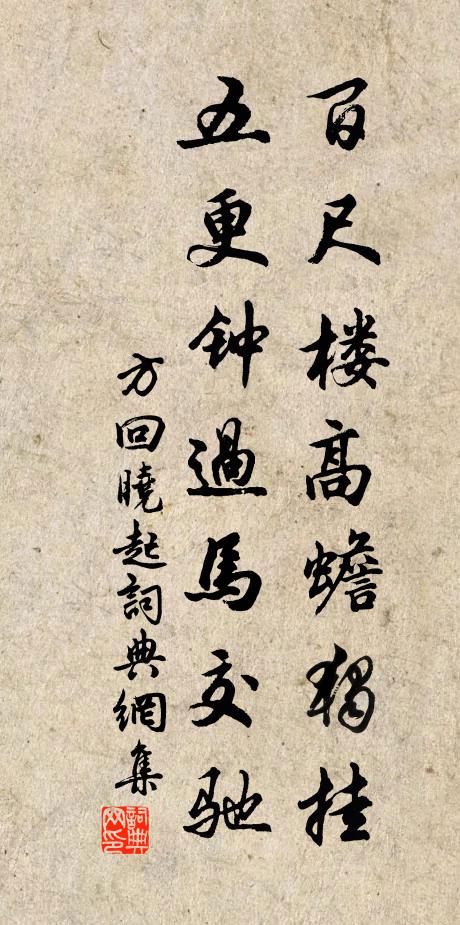 百尺楼高蟾独挂
五更钟過馬交驰
方回曉起詞典網集
詞典网印